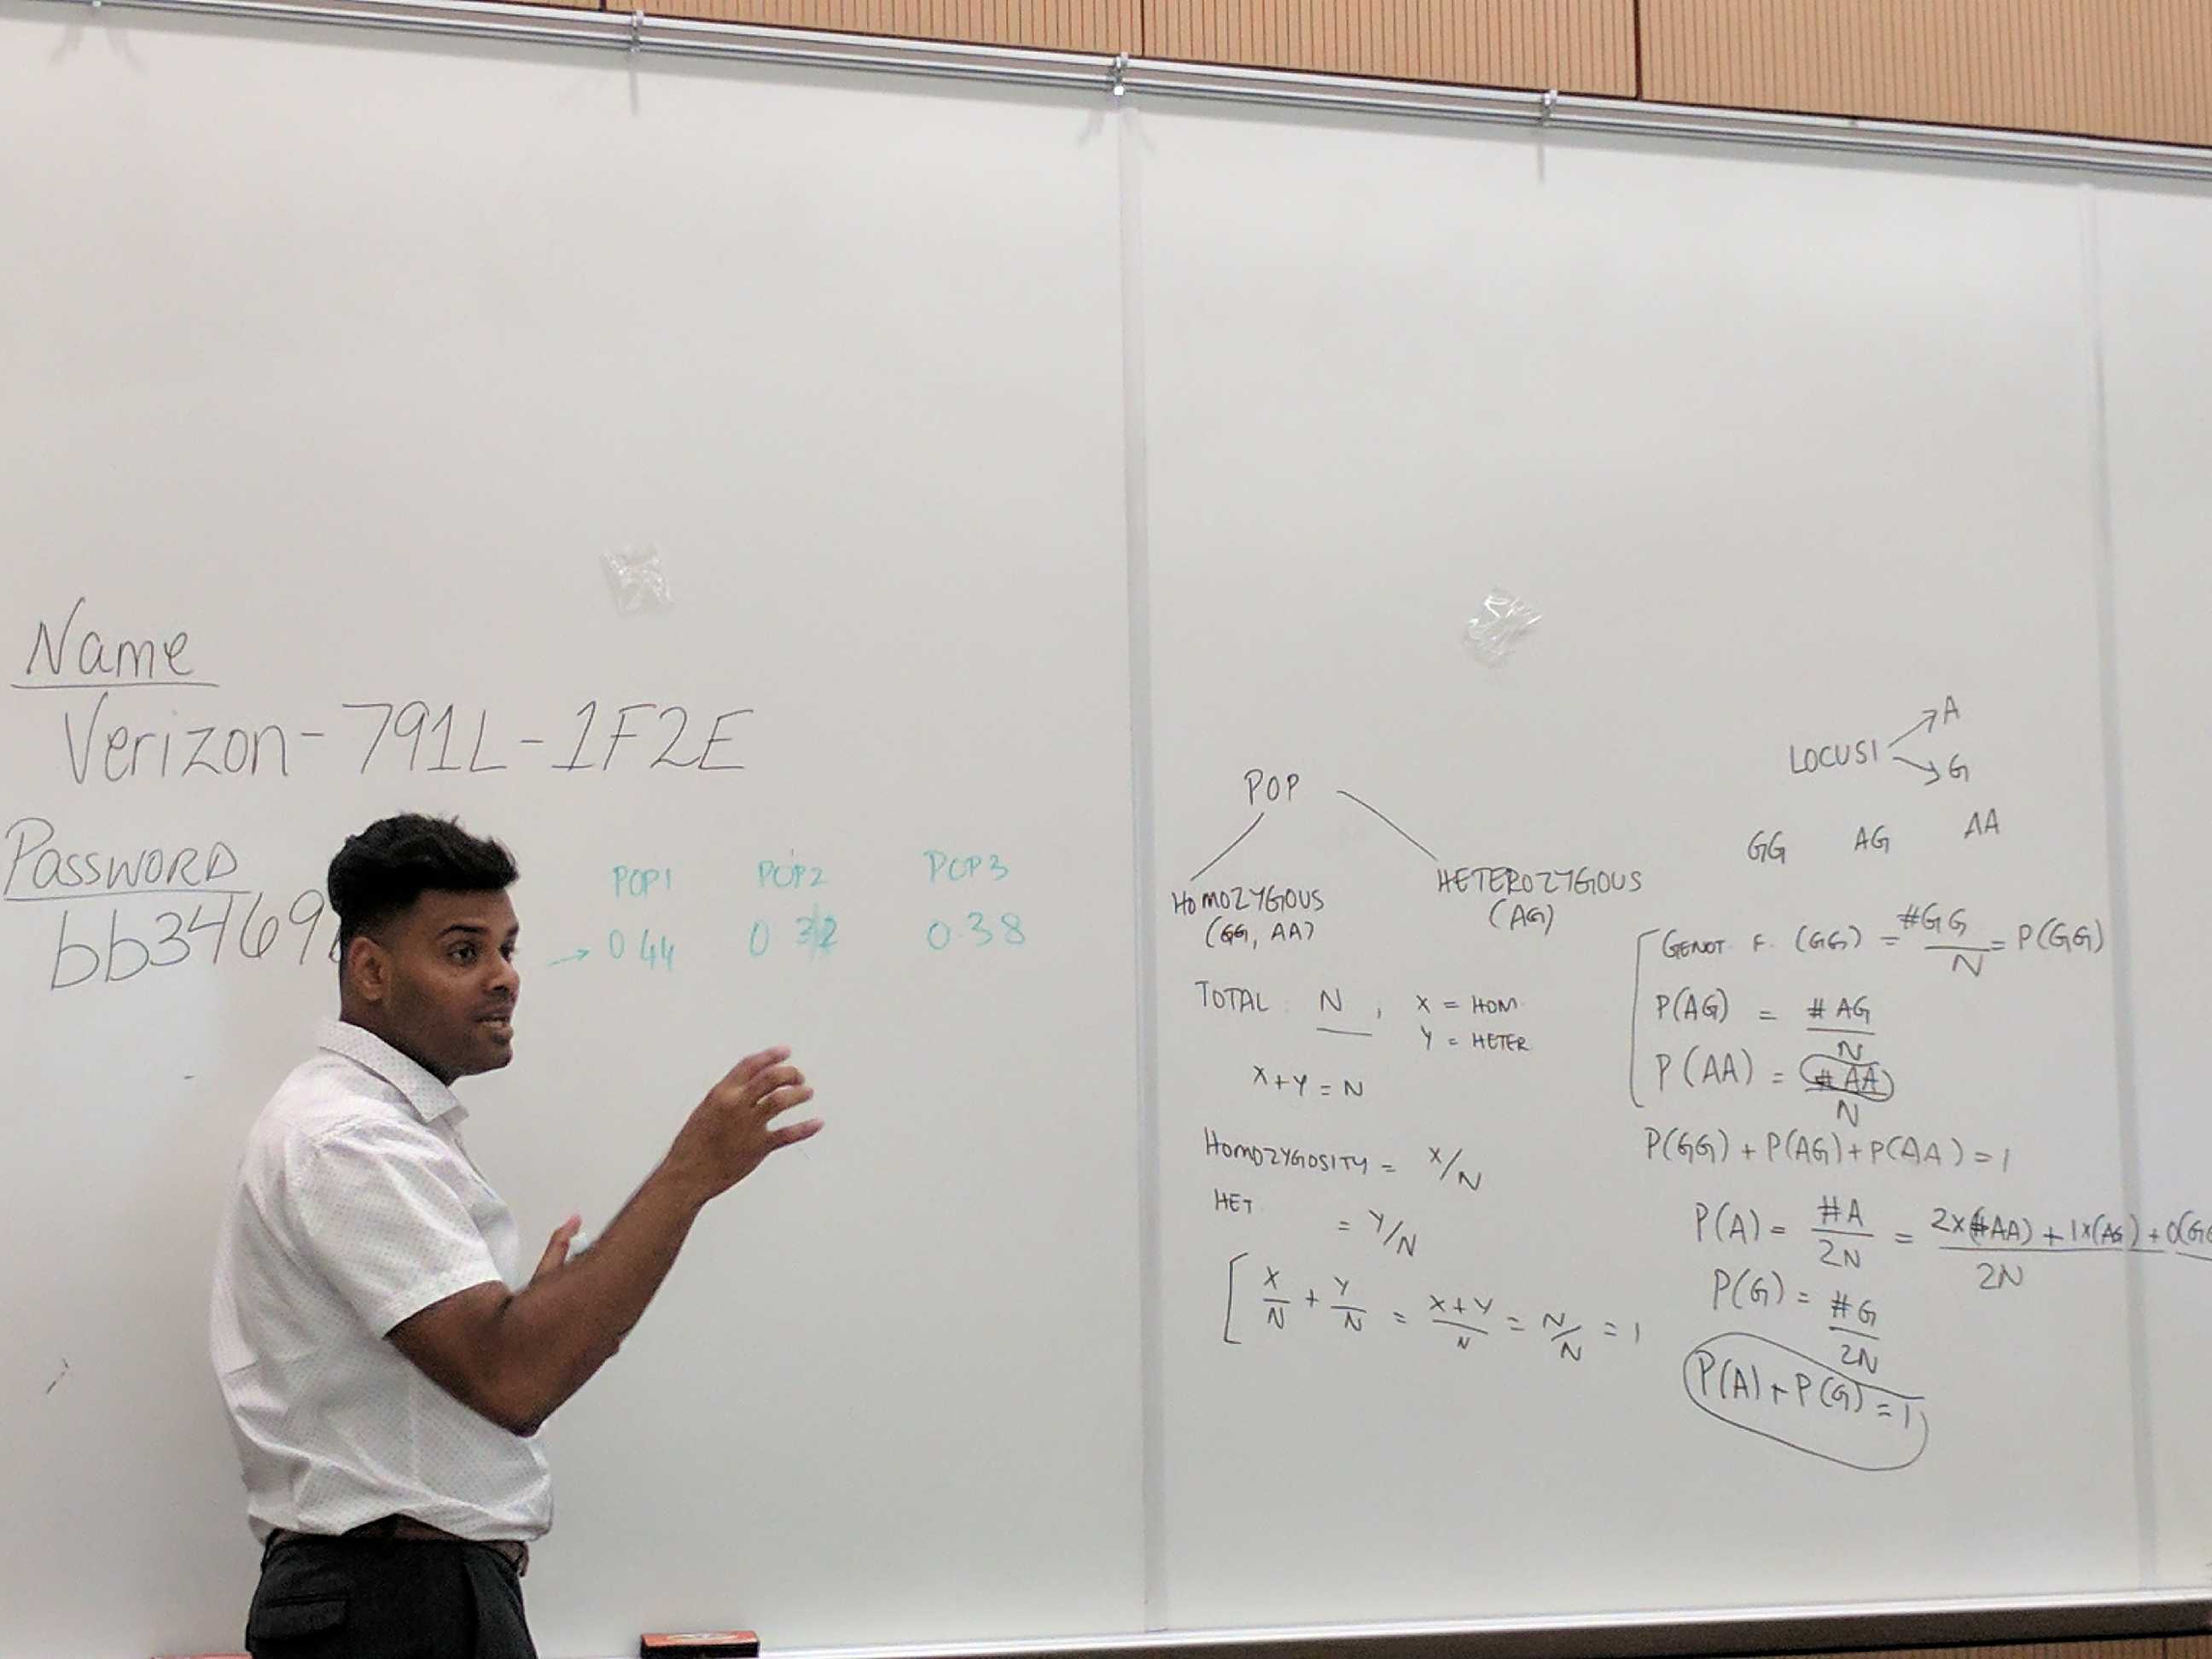 Name
Verizon-791L-1F2E
Password
bb3469
POP1 POP2 POP3
→ 0.44 0.32 0.38
POP
HOMOZYGOUS
(GG, AA)
HETEROZYGOUS
(AG)
TOTAL : N , X = HOM.
Y = HETER
X+Y = N
HOMOZYGOSITY = X/N
HET = Y/N
X/N + Y/N = X+Y/N = N/N = 1
LOCUS1 → A
→ G
GG AG AA
GENOT. F. (GG) = #GG/N = P(GG)
P(AG) = #AG/N
P(AA) = #AA/N
P(GG) + P(AG) + P(AA) = 1
P(A) = #A/2N = 2x(#AA) + 1x(AG) + 0(GG/2N
P(G) = #G/2N
P(A) + P(G) = 1